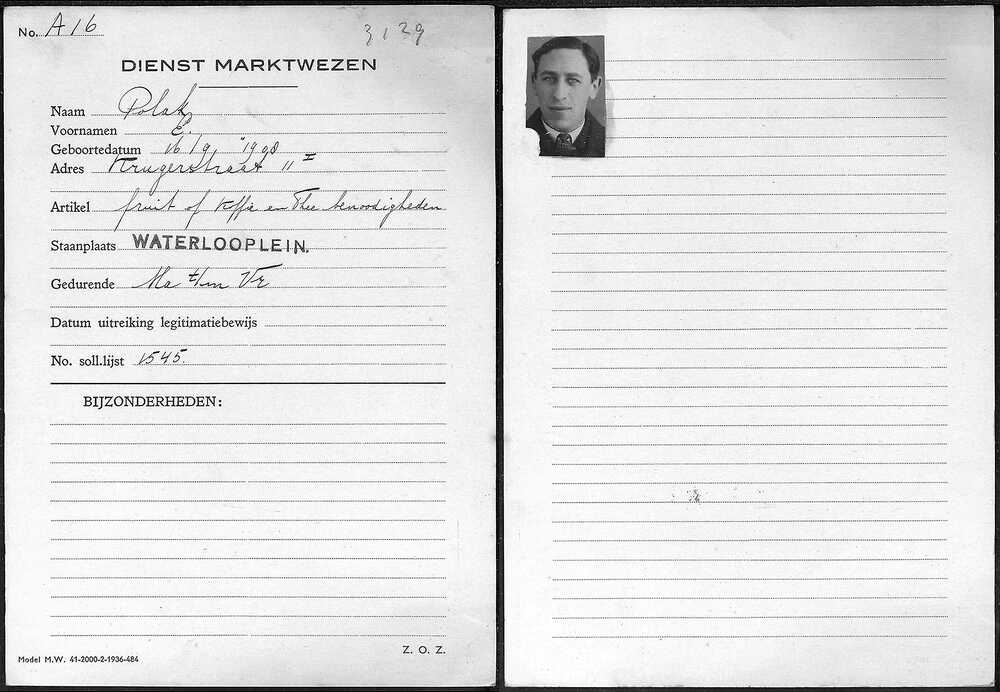 No. A16
3139
DIENST MARKTWEZEN
Naam Polak
Voornamen E.
Geboortedatum 16/9 '1908
Adres Krugerstraat 11 I
Artikel fruit of koffie en Thee benoodigheden
Staanplaats WATERLOOPLEIN.
Gedurende Ma t/m Vr
Datum uitreiking legitimatiebewijs
No. soll.lijst 1545.
BIJZONDERHEDEN:
Z. O. Z.
Model M.W. 41-2000-2-1936-484